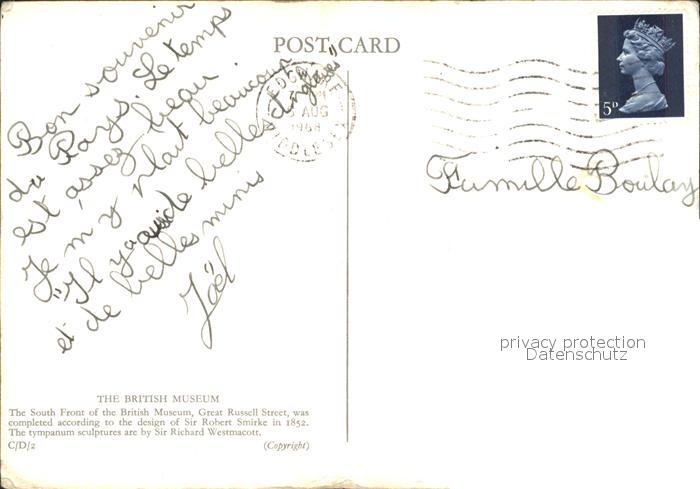 POST CARD
Bon souvenir
du Pays. Le temps
est assez beau.
Je m'y plait beaucoup
"Il y a de belles Anglaises"
et de belles minis
Joël
AUG
1968
5D
Famille Boulay
privacy protection
Datenschutz
THE BRITISH MUSEUM
The South Front of the British Museum, Great Russell Street, was
completed according to the design of Sir Robert Smirke in 1852.
The tympanum sculptures are by Sir Richard Westmacott.
C/D/2 (Copyright)